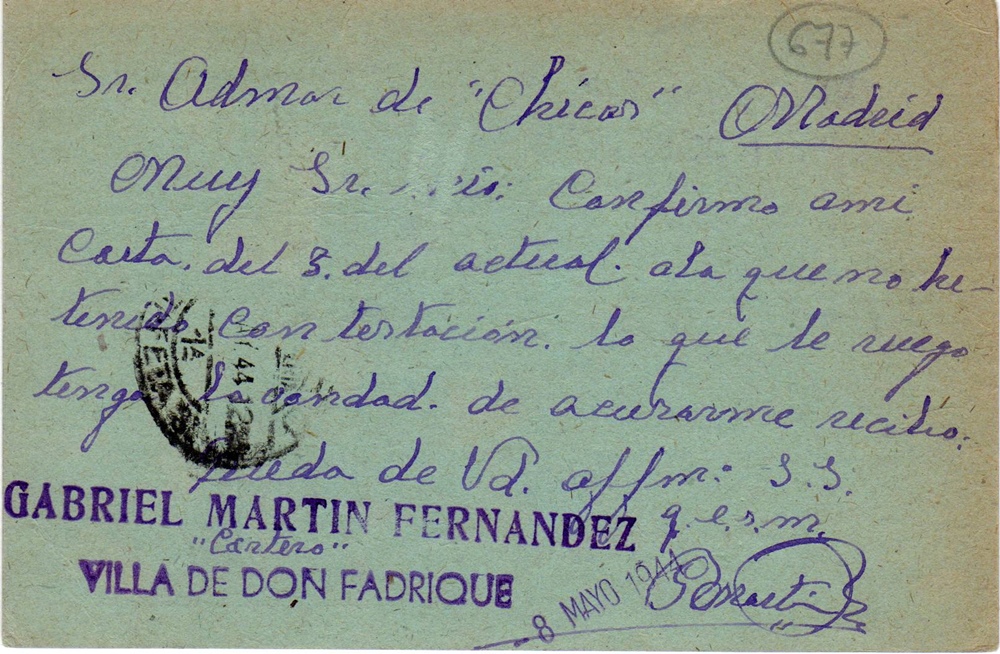 677
Sr. Admor de "Chicos" Madrid
Muy Sr. mio: Confirmo ami
Carta. del 3. del actual. ala que no he-
tenido contestación. lo que le ruego
tenga la vondad. de acurarme recibo:
queda de Vd. affmº S.S.
q.e.s.m.
GABRIEL MARTIN FERNANDEZ
"Cartero"
VILLA DE DON FADRIQUE
8 MAYO 1944
GMartin
44 12